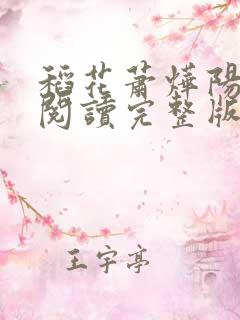 稻花蕭燁陽
閱讀完整版
王宇亭